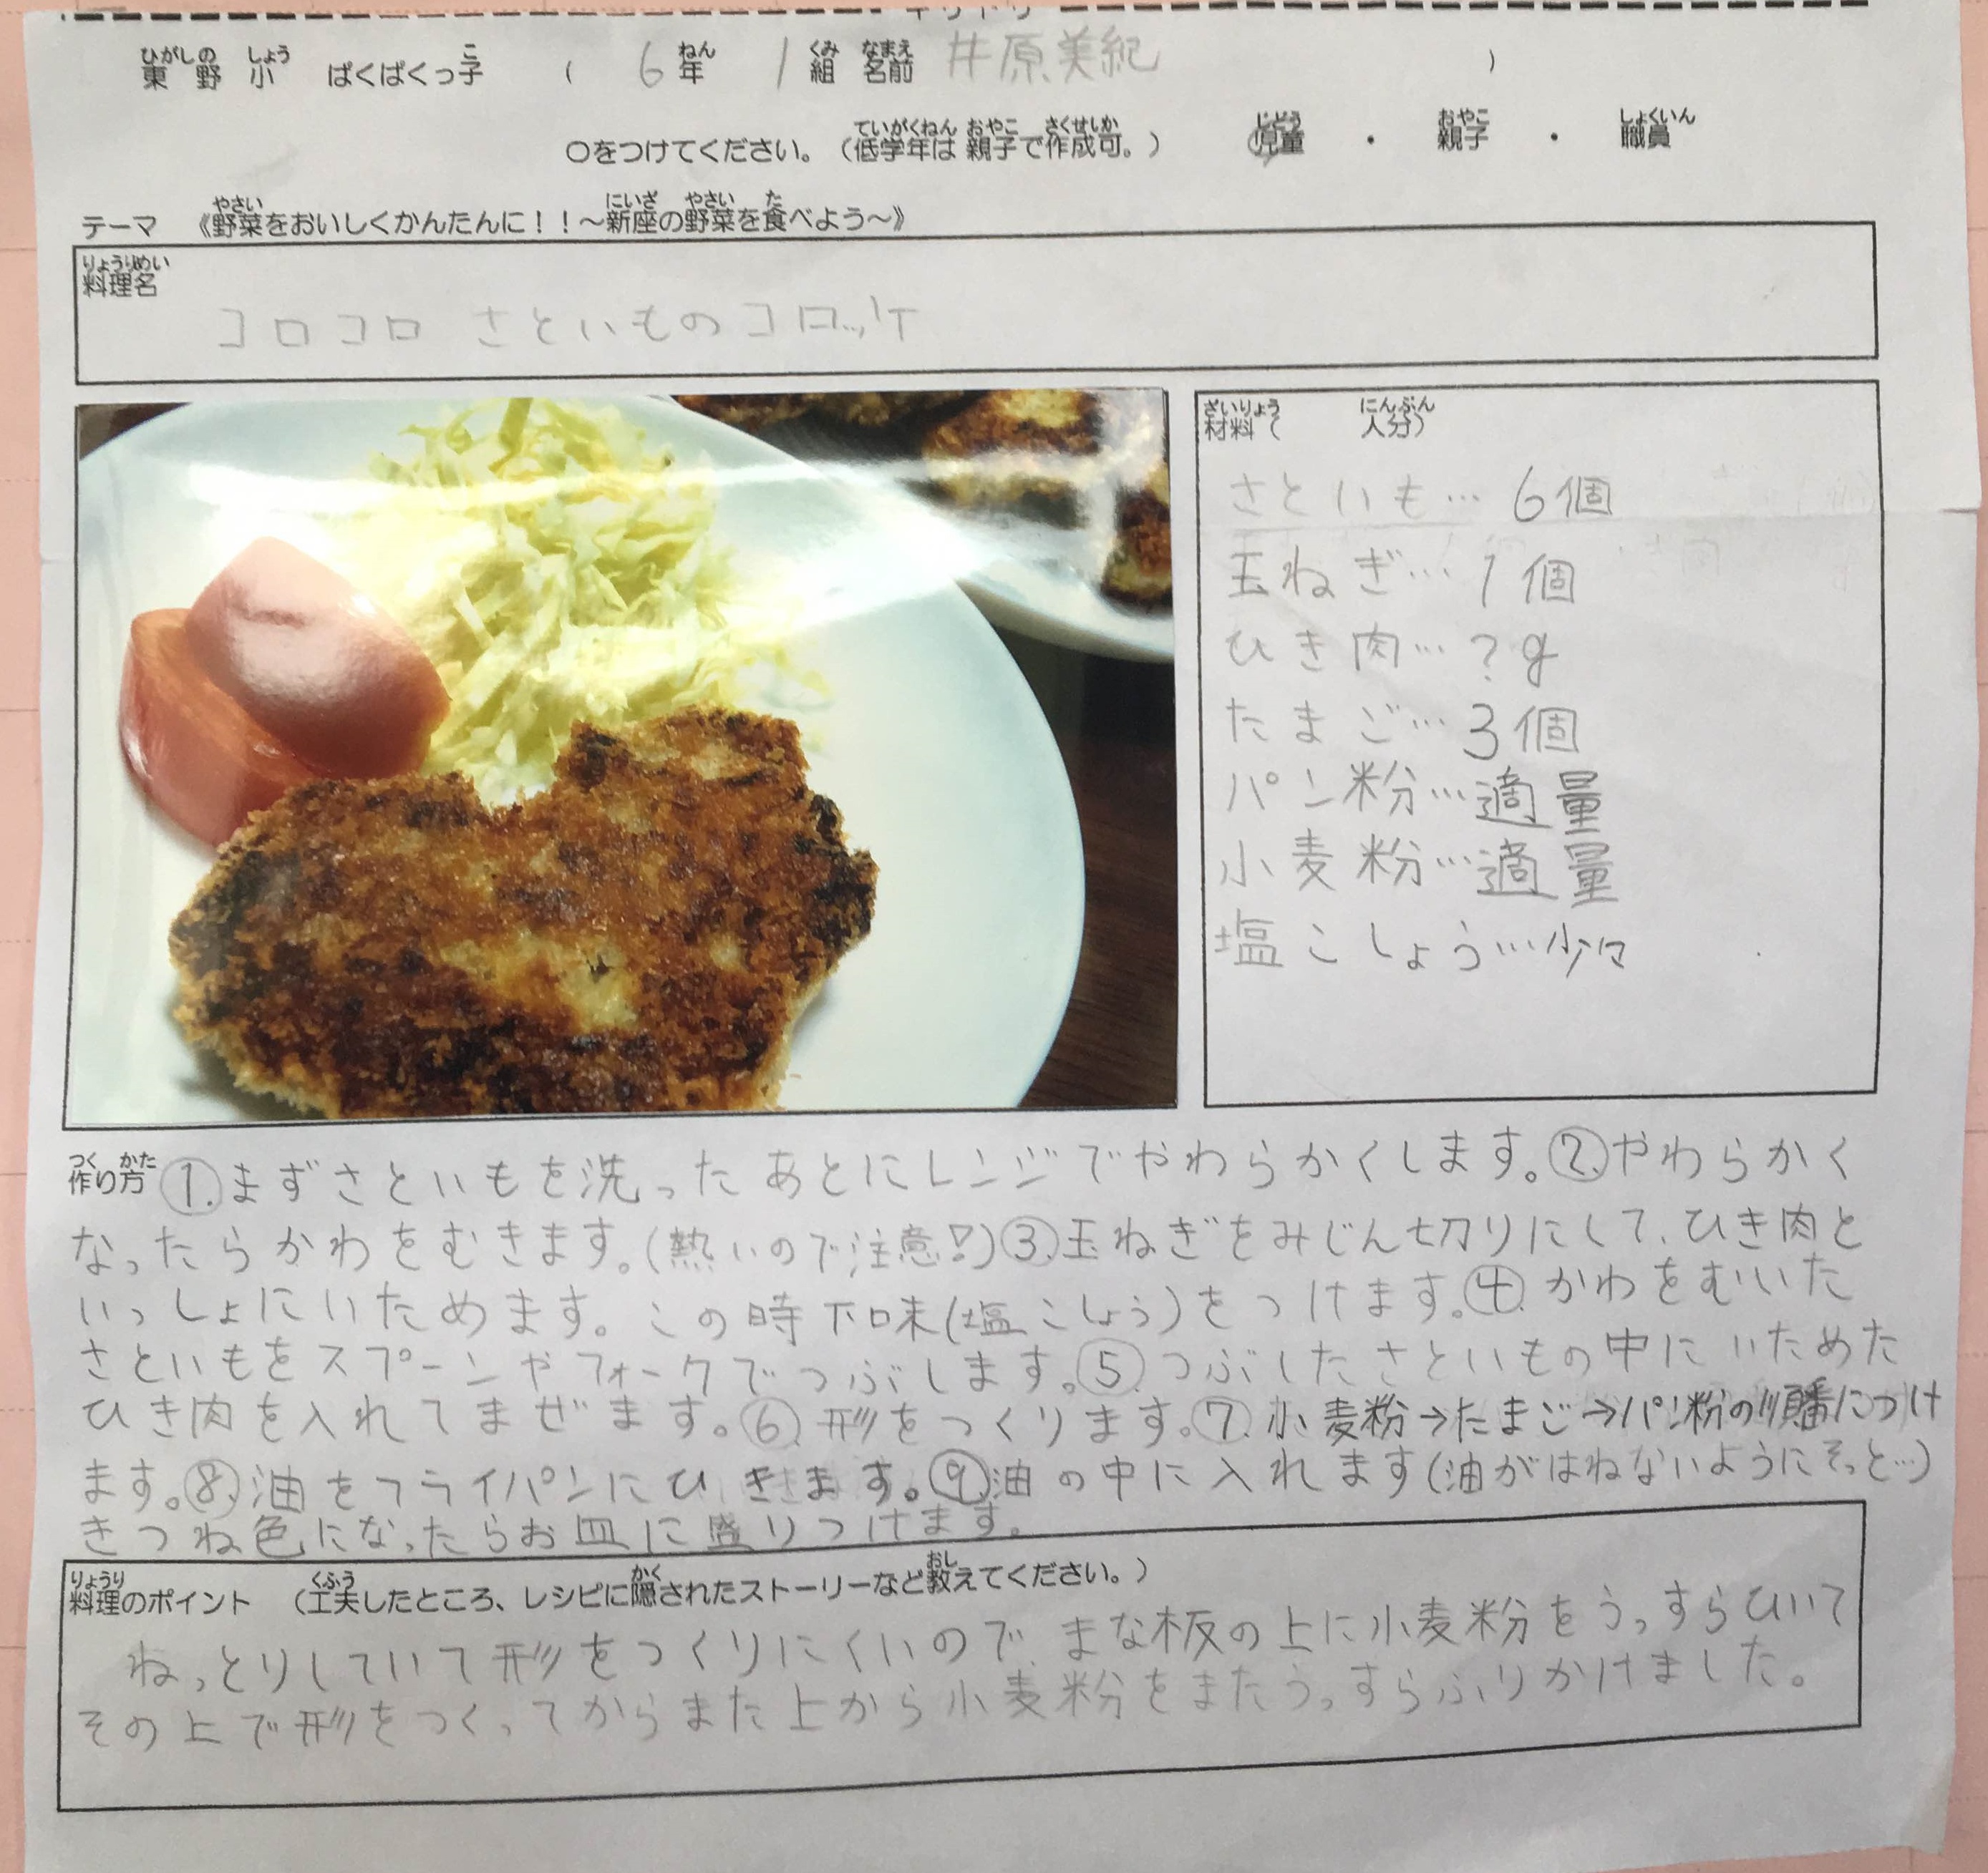 キリトリ
東野小 ぱくぱくっ子 ( 6年 1組 名前 井原美紀 )
○をつけてください。(低学年は 親子で作成可。) 児童 ・ 親子 ・ 職員
テーマ 《野菜をおいしくかんたんに!!~新座の野菜を食べよう~》
料理名
コロコロ さといものコロッケ
材料( 人分)
さといも…6個
玉ねぎ…1個
ひき肉…?g
たまご…3個
パン粉…適量
小麦粉…適量
塩こしょう…少々
作り方 ①.まずさといもを洗ったあとにレンジでやわらかくします。②.やわらかく
なったらかわをむきます。(熱いので注意!)③.玉ねぎをみじん切りにして、ひき肉と
いっしょにいためます。この時下味(塩こしょう)をつけます。④.かわをむいた
さといもをスプーンやフォークでつぶします。⑤.つぶしたさといもの中にいためた
ひき肉を入れてまぜます。⑥.形をつくります。⑦.小麦粉→たまご→パン粉の順番につけ
ます。⑧.油をフライパンにひきます。⑨.油の中に入れます(油がはねないようにそっと…)
きつね色になったらお皿に盛りつけます。
料理のポイント (工夫したところ、レシピに隠されたストーリーなど教えてください。)
ねっとりしていて形をつくりにくいので、まな板の上に小麦粉をうっすらひいて
その上で形をつくってからまた上から小麦粉をまたうっすらふりかけました。